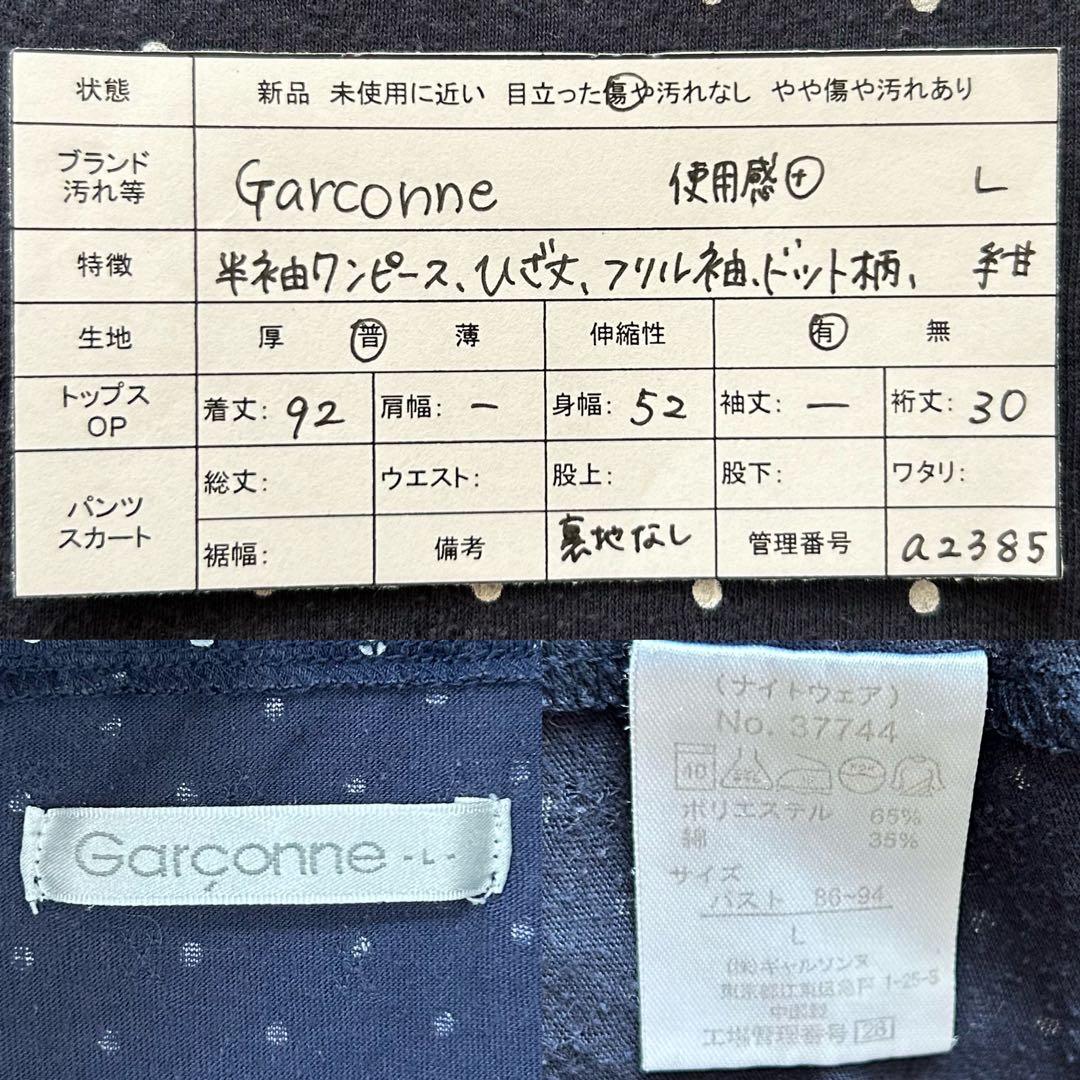 状態 新品 未使用に近い 目立った傷や汚れなし やや傷や汚れあり
ブランド
汚れ等
Garconne 使用感+ L
特徴 半袖ワンピース、ひざ丈、フリル袖、ドット柄、紺
生地 厚 普 薄 伸縮性 有 無
トップス
OP
着丈: 92 肩幅: ー 身幅: 52 袖丈: ー 裄丈: 30
パンツ
スカート
総丈: ウエスト: 股上: 股下: ワタリ:
裾幅: 備考 裏地なし 管理番号 a2385
Garçonne -L-
(ナイトウェア)
No. 37744
40
ポリエステル 65%
綿 35%
サイズ
バスト 86~94
L
(株)ギャルソンヌ
東京都江東区亀戸 1-25-5
中国製
工場管理番号 28